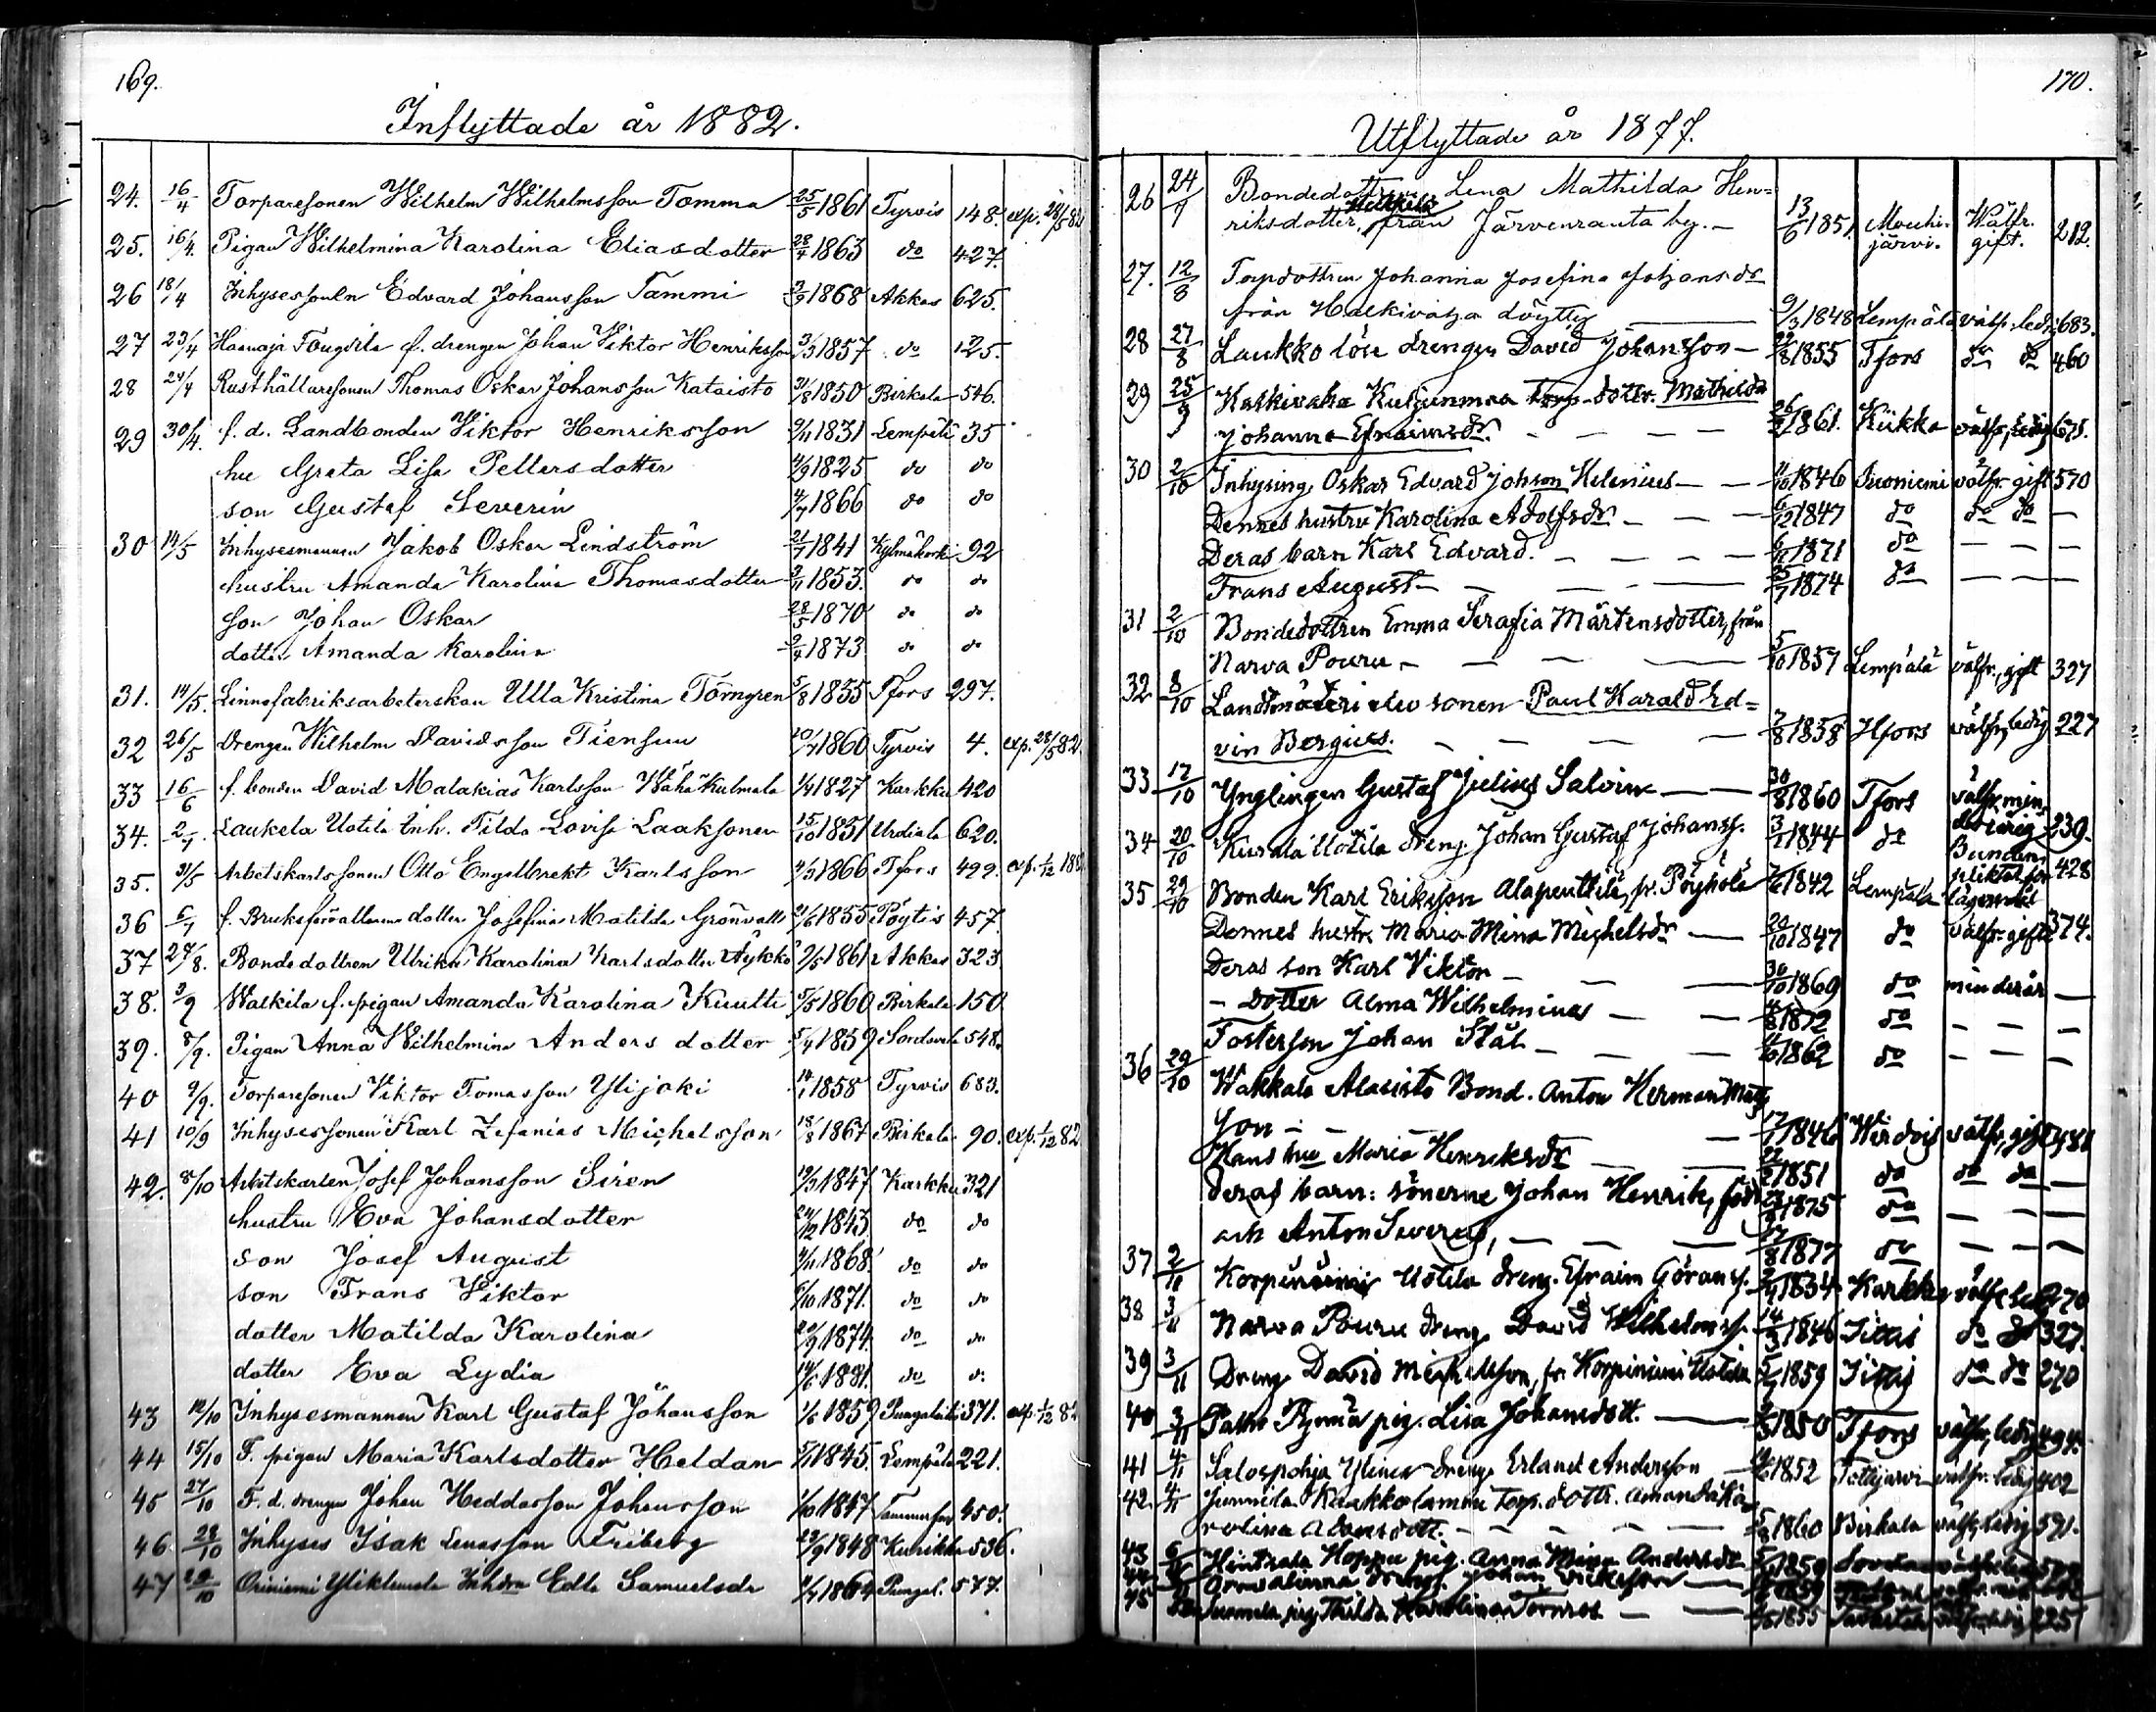 169.
Inflyttade år 1882.
24. 16/4 Torparesonen Wilhelm Wilhelmsson Tomma 25/5 1861 Tyrvis 148. exp. 28/5 82
25. 16/4. Pigan Wilhelmina Karolina Eliasdotter 28/4 1863 do 427.
26 18/4 Inhysessonen Edvard Johansson Tammi 1868 Akkas 625.
27 23/4 f. drengen Johan Viktor Henriksson 3/3 1857 do 125.
28 24/4 Rusthållaresonen Thomas Oskar Johansson Kataisto 31/8 1850 Birkala 546.
29 30/4. f. d. Landbonden Viktor Henriksson 1831 Lempälä 35
hu Greta Lisa Pettersdotter 4/9 1825 do do
son Gustaf Severin 4/7 1866 do do
30 14/5 Inhysesmannen Jakob Oskar Lindström 21/7 1841 Kylmäkoski 92
hustru Amanda Karolina Thomasdotter 3/11 1853. do do
son Johan Oskar 28/5 1870 do do
dotter Amanda Karolina 2/4 1873 do do
31. 14/5. Linnefabriksarbeterskan Ulla Kristina Törngren 5/8 1855 Tfors 297.
32 26/5 Drengen Wilhelm Davidsson Tiensuu 20/7 1860 Tyrvis 4. exp. 28/5 82.
33 16/6 f. bonden David Malakias Karlsson Wähä Kulmala 1/4 1827 Karkku 420
34. 2/7. Laukela Uotila Inh. Tilda Lovisa Laaksonen 15/10 1851 Urdiala 620.
35. 31/5 Arbetskarlssonen Otto Engelbrekt Karlsson 4/3 1866 Tfors 499. exp. 1/12 1882
36 6/7 f. Bruksförvaltarens dotter Josefina Matilda Grönvall 21/6 1855 Pöytis 457.
37 28/8. Bondedottren Ulrika Karolina Karlsdotter Äykko 2/5 1861 Akkas 323.
38. 3/9 Walkila f. pigan Amanda Karolina Kuutti 5/5 1860 Birkala 150
39. 8/9. Pigan Anna Wilhelmina Anders dotter 5/4 1859 548.
40 9/9. Torparesonen Viktor Tomasson Ylijoki 14/1 1858 Tyrvis 683.
41 10/9 Inhysessonen Karl Zefanias Michelsson 18/8 1867 Birkala 90. exp. 1/12 82
42. 8/10 Arbetskarlen Josef Johansson Siren 19/3 1847 Karkku 321
hustru Eva Johansdotter 24/12 1843 do do
son Josef August 4/11 1868. do do
son Frans Viktor 6/10 1871. do do
dotter Matilda Karolina 20/9 1874. do do
dotter Eva Lydia 14/6 1881. do do
43 12/10 Inhysesmannen Karl Gustaf Johansson 1/6 1859 371. exp. 1/12 82
44 15/10 F. pigan Maria Karlsdotter Heldan 5/11 1845. Lempälä 221.
45 27/10 F. d. drengen Johan Heddasson Johansson 1/10 1847 Tammerfors 450.
46. 28/10 Inhyses Isak Lenasson Friberg 23/9 1848 Kurikka 536.
47 29/10 Oriniemi Edla Samuelsdr 1864 Pungal. 577.
170.
Utflyttade år 1877.
26 24/7 Bondedottren Lena Mathilda Hen=
riksdotter, från Järvenranta by. 13/6 1851. Mouhijärvi. Wälfr. gift. 212.
27. 12/8 Torpdottren Johanna Josefina Johansdr
från Halkivaha 9/3 1848 Lempälä välfr. ledig 683.
28 27/8 Laukko löse drengen David Johansson 1855 Tfors do do 460
29 25/9 Halkivaha Kuljunmaa Torp. dottr. Mathilda
Johanna Efraimsdr. 1861. Kiikka välfr., ledig 671.
30 2/10 Inhysing. Oskar Edvard Johsson Helenius 11/10 1846 Suoniemi välfr. gift 570
Dennes hustru Karolina Adolfsdr. 6/12 1847 do do do
Deras barn Karl Edvard. 1871 do
Frans August 1874 do
31 2/10 Bondedottren Emma Serafia Mårtensdotter, från
Narva Pouru 5/10 1857 Lempälä välfr., gift 327
32 8/10 Landtmäteri elev sonen Paul Harald Ed=
vin Bergius. 7/8 1858 Hfors välfr., ledig 227
33 17/10 Ynglingen Gustaf Julius Salvin 30/8 1860 Tfors välfr., min
derårig 239.
34 20/10 Kurala Uotila dreng. Johan Gustaf Johanss. 3/1 1844 do 428
35 29/10 Bonden Karl Eriksson Alapenttilä, fr. Pöyhölä 1842 Lempälä
Dennes hustr. Maria Mina Michelsdr 20/10 1847 do välfr. gifte 374.
Deras son Karl Viktor 30/10 1869 do minderår
dotter Alma Wilhelmina 1872 do
Fosterson Johan Stål 1862 do
36 29/10 Wakkala Alasisto Bond. Anton Herman Mats
son 17/1 1846 Wirdois välfr., gift 481
Hans hu Maria Henriksdr 1851 do do do
Deras barn: sönerne Johan Henrik, född 1875 do
och Anton Severus, 1877 do
37 2/11 Korpiniemi Uotila dreng. Efraim Göranss. 1834 Karkku välfr. ledig 270
38 3/11 Narva Pouru dreng David Wilhelmss. 14/3 1846 Tittis do do 327.
39 3/11 Dreng David Michelsson, fr. Korpiniemi Uotila 5/7 1859 Tittis do do 270
40 3/11 pig. Lisa Johansdott. 1850 Tfors välfr., ledig 494.
41 4/11 Salospohja Ylinen dreng. Erland Andersson 1852 Tottijärvi välfr. ledig 402
42. 4/11 Junnila Kaakkolamaa Torp. dottr. Amanda Ka
rolina Adamsdott. 1860 Birkala välfr., ledig 591.
43 6/11 Hintsala Hoppu pig. Anna Mina Andersdr 1859
44 dreng. Johan 1859
45 pig Thilda Karolina Törnros 1855 225